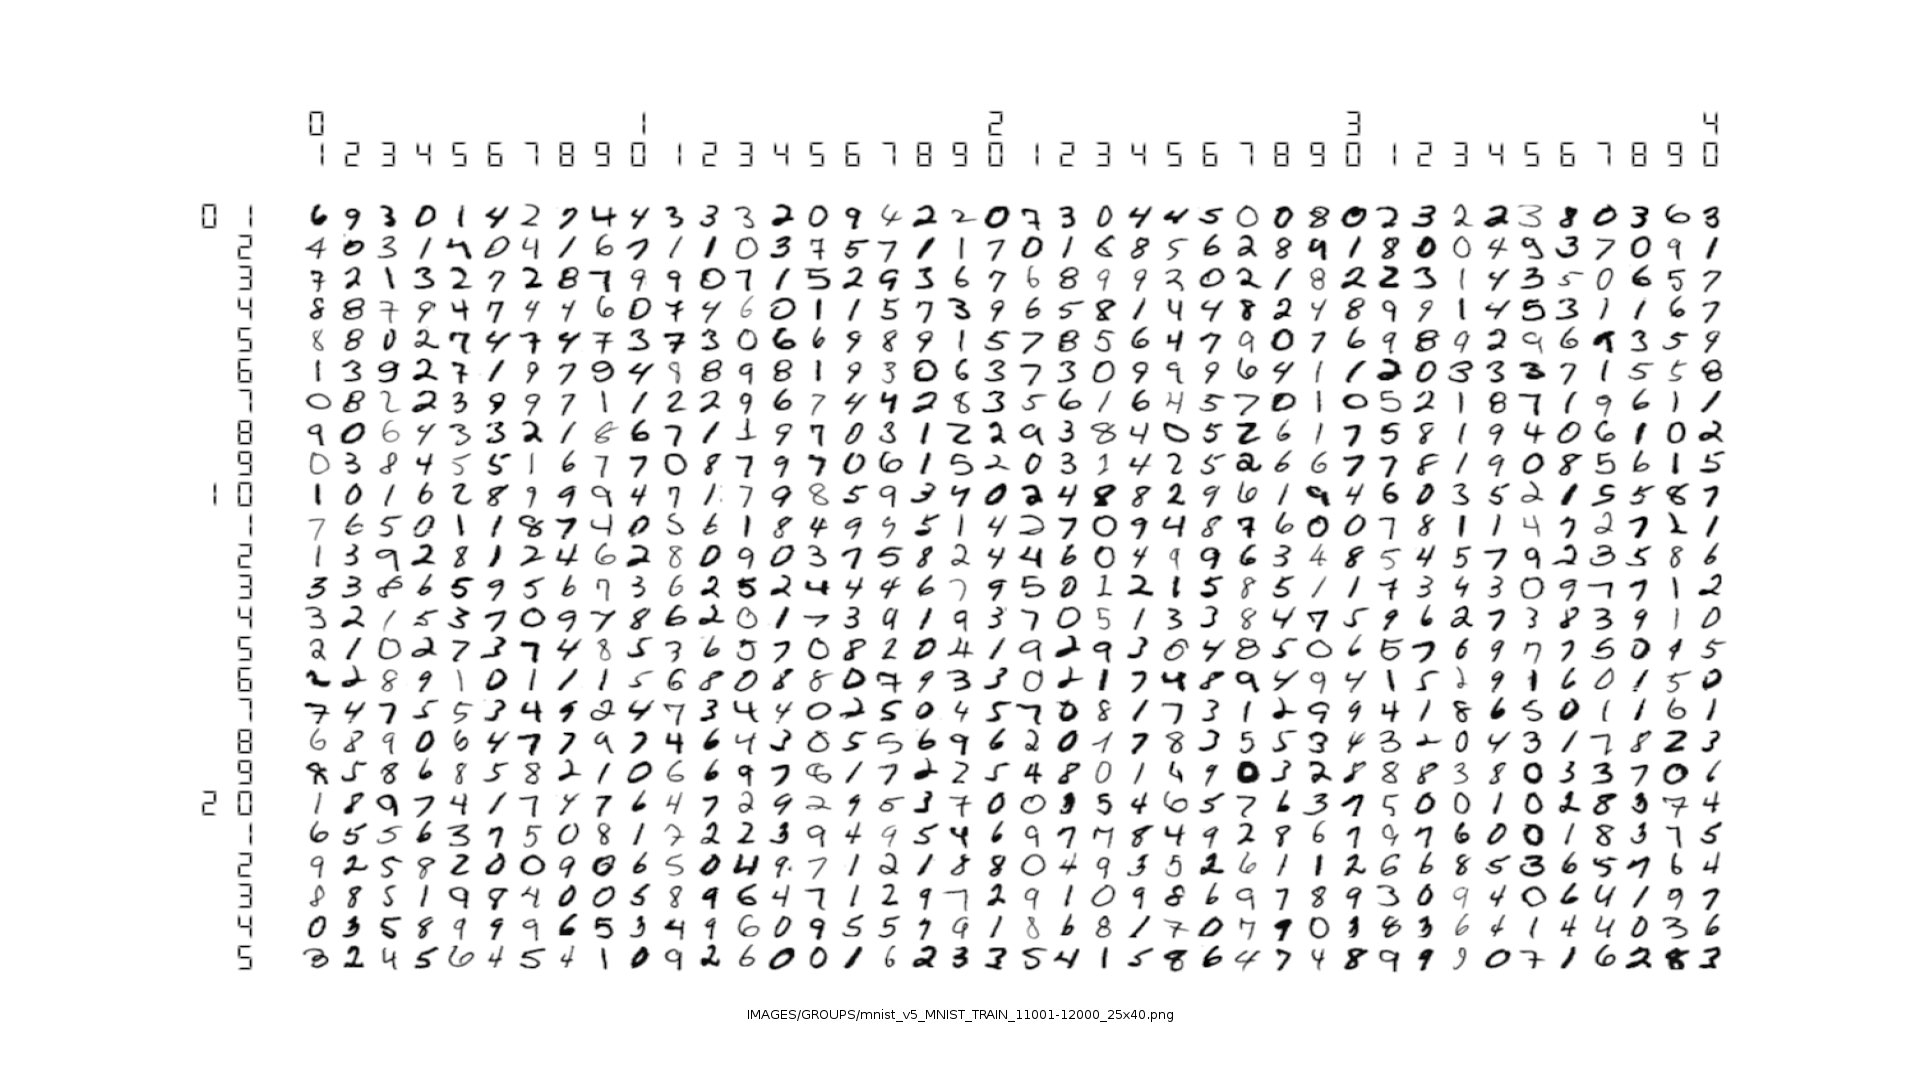 0 1 2 3 4
1 2 3 4 5 6 7 8 9 0 1 2 3 4 5 6 7 8 9 0 1 2 3 4 5 6 7 8 9 0 1 2 3 4 5 6 7 8 9 0
0 1 6 9 3 0 1 4 2 7 4 4 3 3 3 2 0 9 4 2 2 0 7 3 0 4 4 5 0 0 8 0 7 3 2 2 3 8 0 3 6 3
2 4 0 3 1 4 0 4 1 6 7 1 1 0 3 7 5 7 1 1 7 0 1 6 8 5 6 2 8 9 1 8 0 0 4 9 3 7 0 9 1
3 7 2 1 3 2 7 2 8 7 9 9 0 7 1 5 2 9 3 6 7 6 8 9 9 2 0 2 1 8 2 2 3 1 4 3 5 0 6 5 7
4 8 8 7 9 4 7 4 4 6 0 7 4 6 0 1 1 5 7 3 9 6 5 8 1 4 4 8 2 4 8 9 9 1 4 5 3 1 1 6 7
5 8 8 0 2 7 4 7 4 7 3 7 3 0 6 6 9 8 9 1 5 7 8 5 6 4 7 9 0 7 6 9 8 9 2 9 6 9 3 5 9
6 1 3 9 2 7 1 9 7 9 4 8 8 9 8 1 9 3 0 6 3 7 3 0 9 9 9 6 4 1 1 2 0 3 3 3 7 1 5 5 8
7 0 8 2 2 3 9 9 7 1 1 2 2 9 6 7 4 4 2 8 3 5 6 1 6 4 5 7 0 1 0 5 2 1 8 7 1 9 6 1 1
8 9 0 6 4 3 3 2 1 8 6 7 1 1 9 7 0 3 1 2 2 9 3 8 4 0 5 2 6 1 7 5 8 1 9 4 0 6 1 0 2
9 0 3 8 4 5 5 1 6 7 7 0 8 7 9 7 0 6 1 5 2 0 3 1 4 2 5 2 6 6 7 7 8 1 9 0 8 5 6 1 5
1 0 1 0 1 6 2 8 9 9 9 4 7 1 7 9 8 5 9 3 7 0 2 4 8 8 2 9 6 1 9 4 6 0 3 5 2 1 5 5 8 7
1 7 6 5 0 1 1 8 7 4 0 5 6 1 8 4 9 9 5 1 4 2 7 0 9 4 8 7 6 0 0 7 8 1 1 4 7 2 7 2 1
2 1 3 9 2 8 1 2 4 6 2 8 0 9 0 3 7 5 8 2 4 4 6 0 4 9 9 6 3 4 8 5 4 5 7 9 2 3 5 8 6
3 3 3 8 6 5 9 5 6 7 3 6 2 5 2 4 4 4 6 7 9 5 0 1 2 1 5 8 5 1 1 7 3 4 3 0 9 7 7 1 2
4 3 2 1 5 3 7 0 9 7 8 6 2 0 1 7 3 9 1 9 3 7 0 5 1 3 3 8 4 7 5 9 6 2 7 3 8 3 9 1 0
5 2 1 0 2 7 3 7 4 8 5 3 6 5 7 0 8 2 0 4 1 9 2 9 3 0 4 8 5 0 6 5 7 6 9 7 7 5 0 9 5
6 2 2 8 9 1 0 1 1 1 5 6 8 0 8 8 0 7 9 3 3 0 2 1 7 4 8 9 4 9 4 1 5 2 9 1 6 0 1 5 0
7 7 4 7 5 5 3 4 9 2 4 7 3 4 4 0 2 5 0 4 5 7 0 8 1 7 3 1 2 9 9 4 1 8 6 5 0 1 1 6 1
8 6 8 9 0 6 4 7 7 9 7 4 6 4 3 0 5 5 6 9 6 2 0 1 7 8 3 5 5 3 4 3 2 0 4 3 1 7 8 2 3
9 8 5 8 6 8 5 8 2 1 0 6 6 9 7 8 1 7 2 2 5 4 8 0 1 4 9 0 3 2 8 8 8 3 8 0 3 3 7 0 6
2 0 1 8 9 7 4 1 7 4 7 6 4 7 2 9 2 9 5 3 7 0 0 3 5 4 6 5 7 6 3 7 5 0 0 1 0 2 8 3 7 4
1 6 5 5 6 3 7 5 0 8 1 7 2 2 3 9 4 9 5 4 6 9 7 7 8 4 9 2 8 6 7 9 7 6 0 0 1 8 3 7 5
2 9 2 5 8 2 0 0 9 0 6 5 0 4 9 7 1 2 1 8 8 0 4 9 3 5 2 6 1 1 2 6 6 8 5 3 6 5 7 6 4
3 8 8 5 1 9 8 4 0 0 5 8 9 6 4 7 1 2 9 7 2 9 1 0 9 8 6 9 7 8 9 3 0 9 4 0 6 4 1 9 7
4 0 3 5 8 9 9 9 6 5 3 4 9 6 0 9 5 5 7 9 1 8 6 8 1 7 0 7 9 0 3 8 3 6 4 1 4 4 0 3 6
5 3 2 4 5 6 4 5 4 1 0 9 2 6 0 0 1 6 2 3 3 5 4 1 5 8 6 4 7 4 8 9 9 9 0 7 1 6 2 8 3
IMAGES/GROUPS/mnist_v5_MNIST_TRAIN_11001-12000_25x40.png